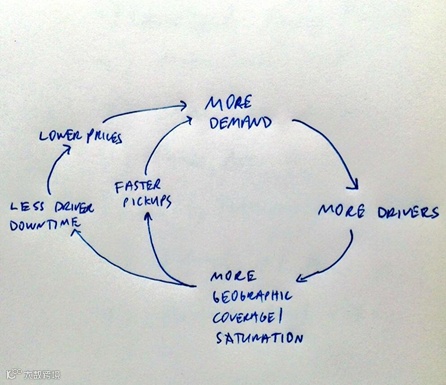 MORE
DEMAND
LOWER PRICES
FASTER
PICKUPS
LESS DRIVER
DOWNTIME
MORE DRIVERS
MORE
GEOGRAPHIC
COVERAGE/
SATURATION
大数跨境